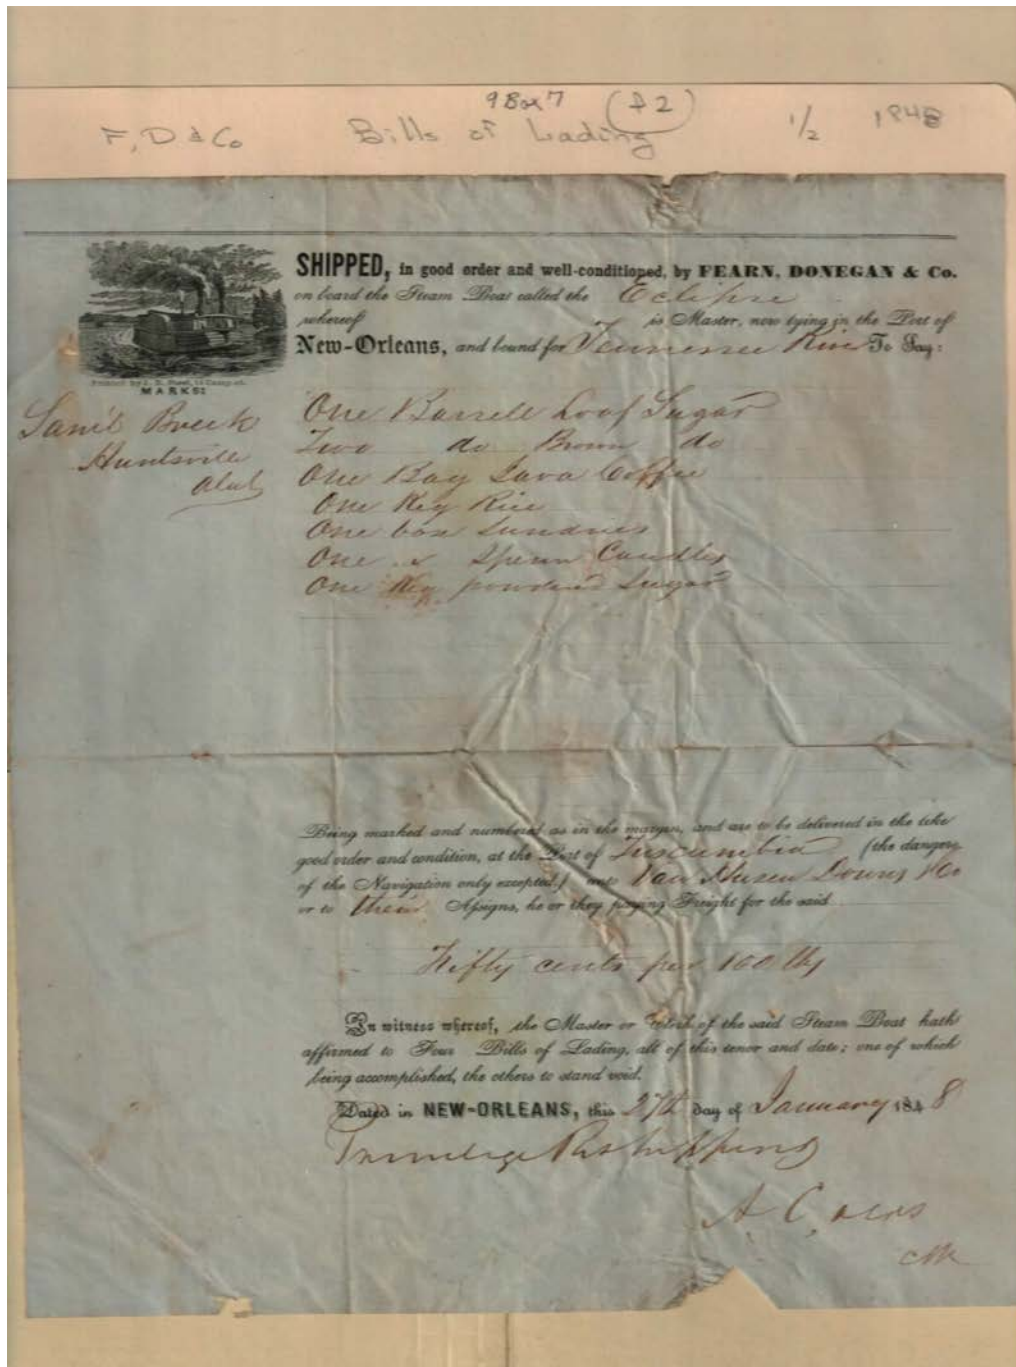 9 Box 7 (f 2)
F, D & Co Bills of Lading 1/2 1848
SHIPPED, in good order and well-conditioned, by FEARN, DONEGAN & Co.
on board the Steam Boat called the Eclipse
whereof is Master, now lying in the Port of
New-Orleans, and bound for Tennessee River To Say:
MARKS:
Sam'l Breck
Huntsville
Alab
One Barrell Loaf Sugar
Two do Brown do
One Bag Java Coffee
One Keg Rice
One box Sundries
One Sperm Candles
One Keg powdered Sugar
Being marked and numbered as in the margin, and are to be delivered in the like
good order and condition, at the Port of Tuscumbia (the dangers
of the Navigation only excepted.) unto Van Husen Downs & Co
or to their Assigns, he or they paying Freight for the said
Fifty cents per 100 lbs
In witness whereof, the Master or Clerk of the said Steam Boat hath
affirmed to Four Bills of Lading, all of this tenor and date; one of which
being accomplished, the others to stand void.
Dated in NEW-ORLEANS, this 27th day of January 1848
Priviledge Reshipping
A. C.
Clk